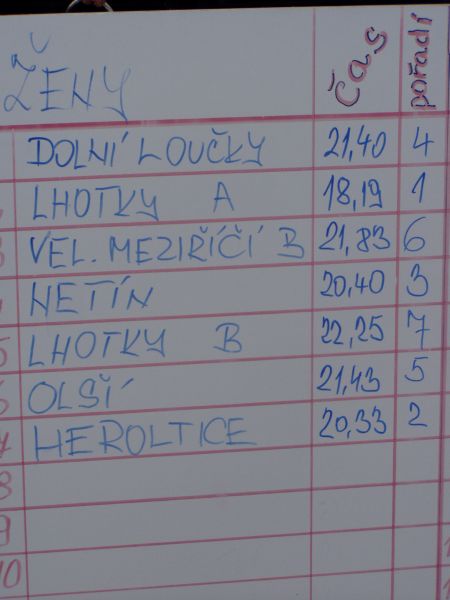 ŽENY Čas pořadí
DOLNÍ LOUČKY 21,40 4
LHOTKY A 18,19 1
3 VEL. MEZIŘÍČÍ B 21,83 6
4 NETÍN 20,40 3
5 LHOTKY B 22,25 7
6 OLŠÍ 21,43 5
7 HEROLTICE 20,33 2
8
9
10